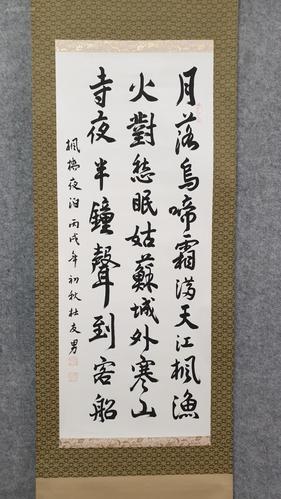 月落烏啼霜满天江楓漁
火對愁眠姑蘇城外寒山
寺夜半鐘聲到客船
楓橋夜泊丙戌年初秋杜友男